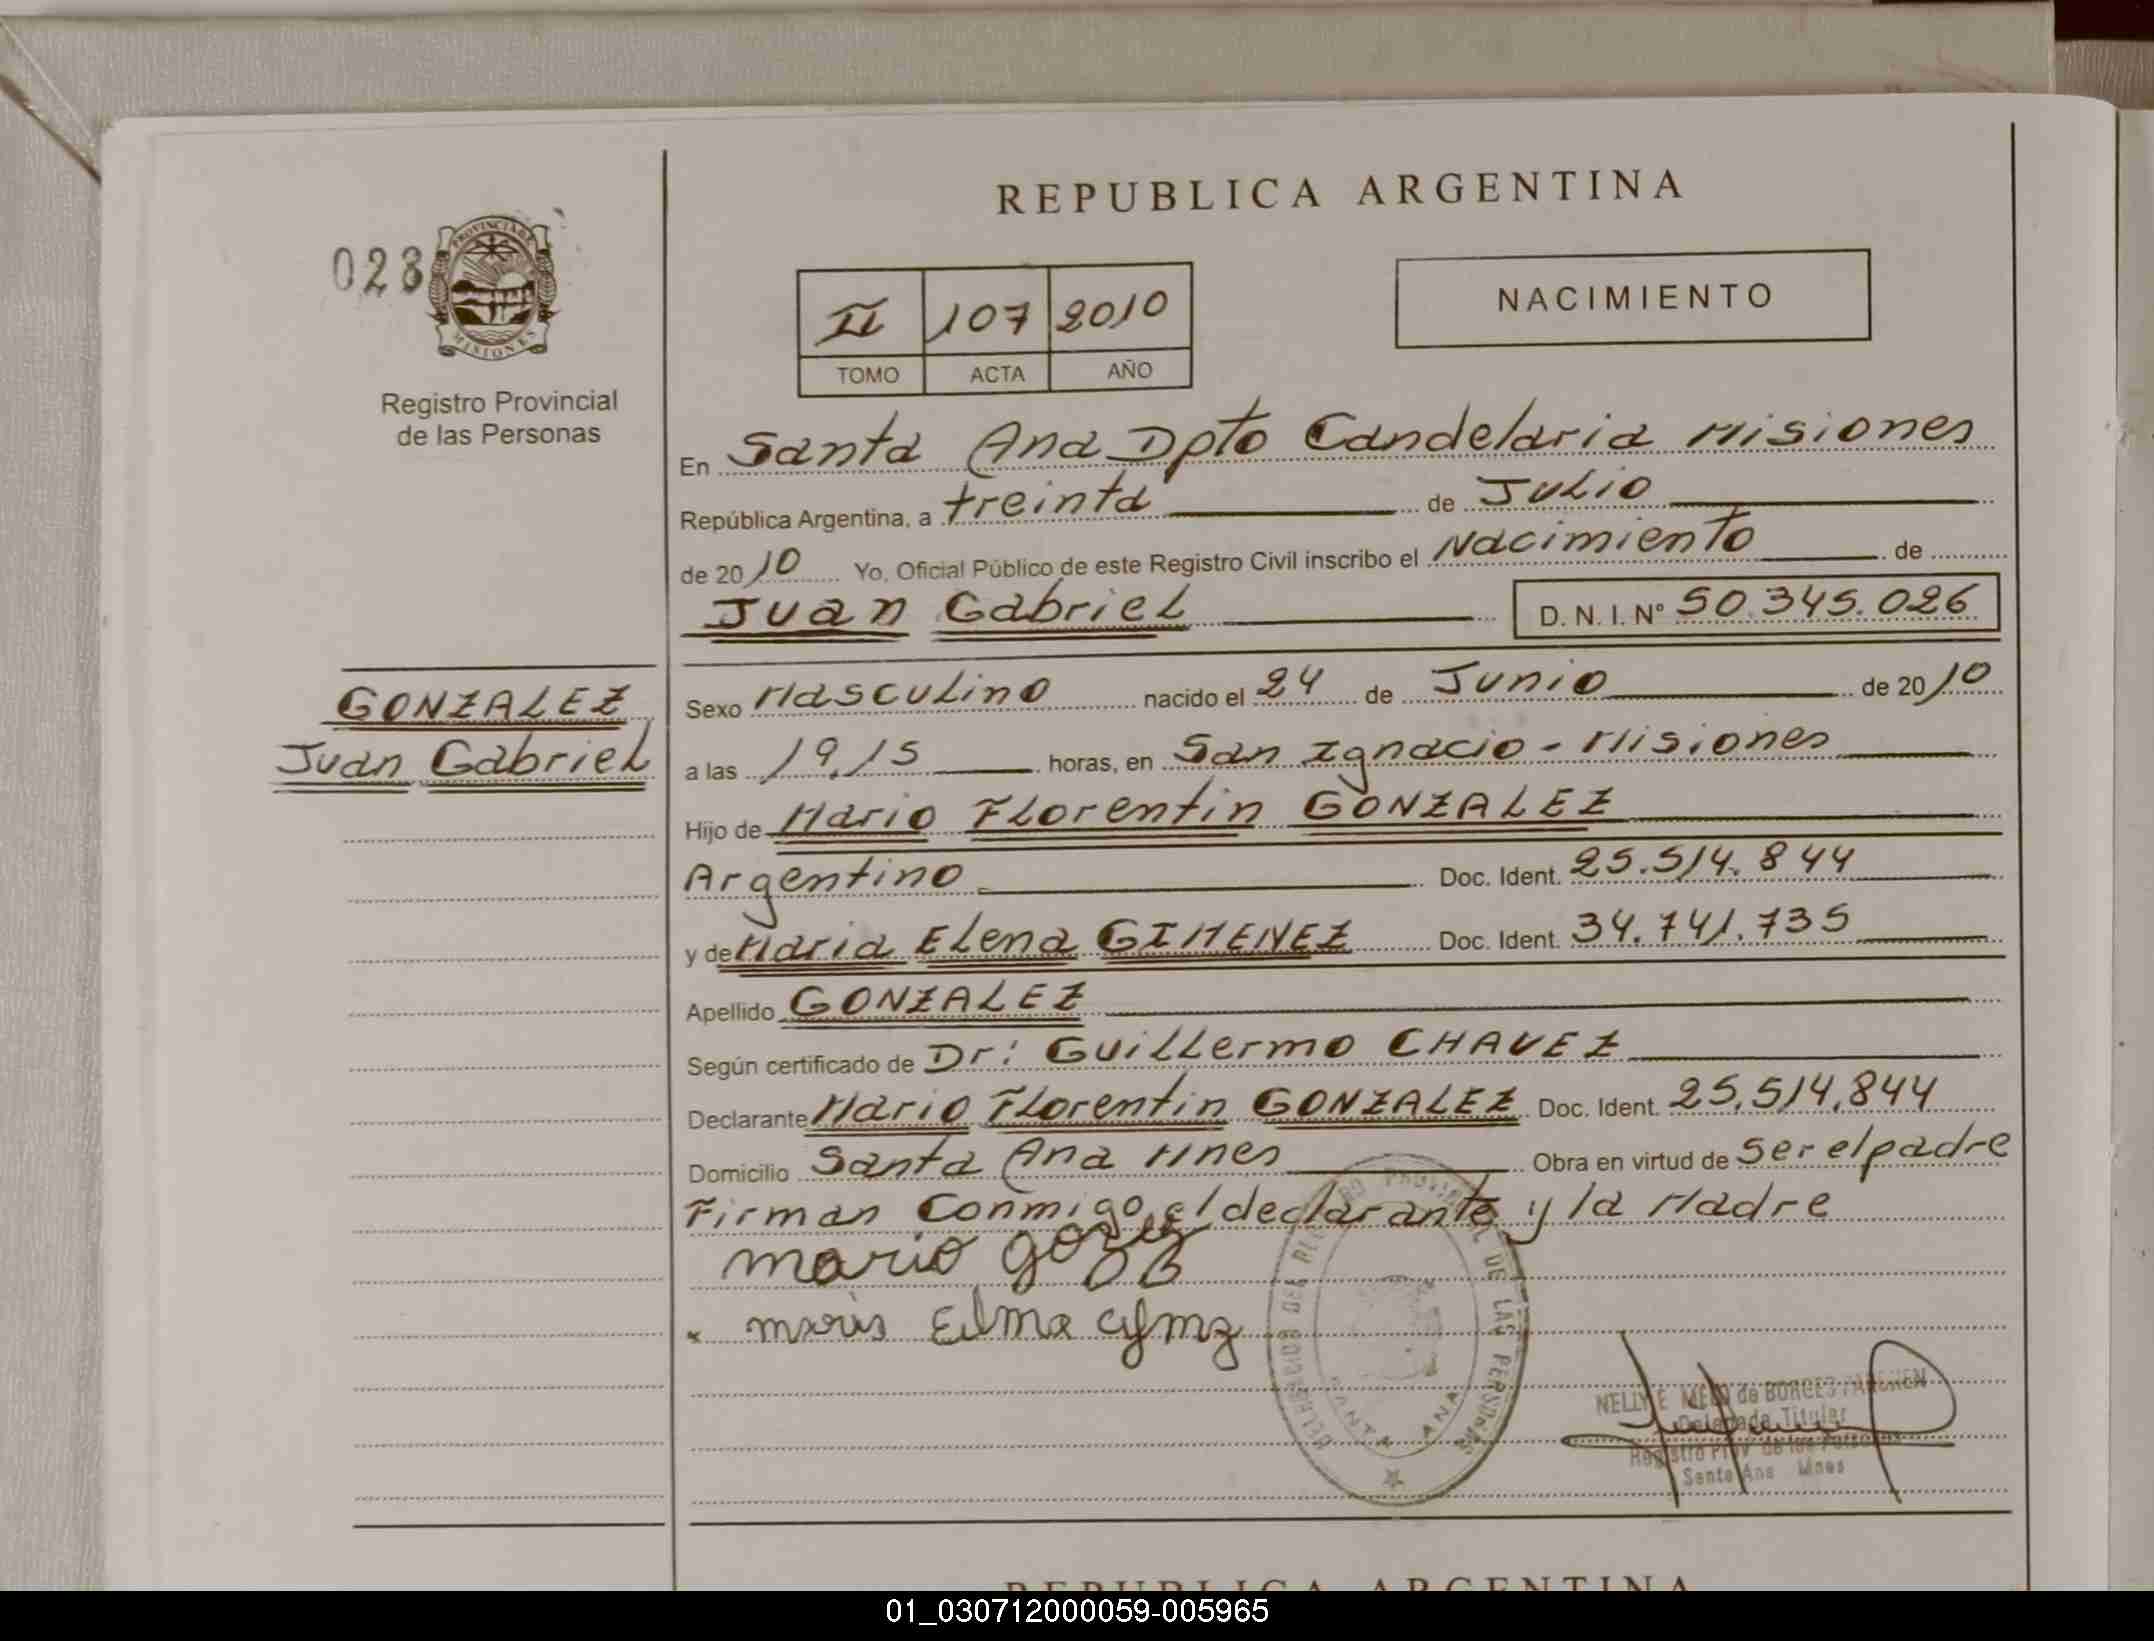 REPUBLICA ARGENTINA
028
PROVINCIA DE
MISIONES
Registro Provincial
de las Personas
II 107 2010
TOMO ACTA AÑO
NACIMIENTO
En Santa Ana Dpto Candelaria Misiones
República Argentina, a treinta de Julio
de 2010 Yo, Oficial Público de este Registro Civil inscribo el Nacimiento de
Juan Gabriel D. N. I. Nº 50.345.026
GONZALEZ
Juan Gabriel
Sexo Masculino nacido el 24 de Junio de 2010
a las 19,15 horas, en San Ignacio - Misiones
Hijo de Mario Florentin GONZALEZ
Argentino Doc. Ident. 25.514.844
y de Maria Elena GIMENEZ Doc. Ident. 34.741.735
Apellido GONZALEZ
Según certificado de Dr: Guillermo CHAVEZ
Declarante Mario Florentin GONZALEZ Doc. Ident. 25,514,844
Domicilio Santa Ana Mnes Obra en virtud de Ser el padre
Firman Conmigo el declarante y la Madre
mario
DELEGACION DEL REGISTRO PROVINCIAL DE LAS PERSONAS
SANTA ANA
NELLY E MELO de BORGES
Delegada Titular
Registro Prov de las Personas
Santa Ana Mnes
REPUBLICA ARGENTINA
01_030712000059-005965